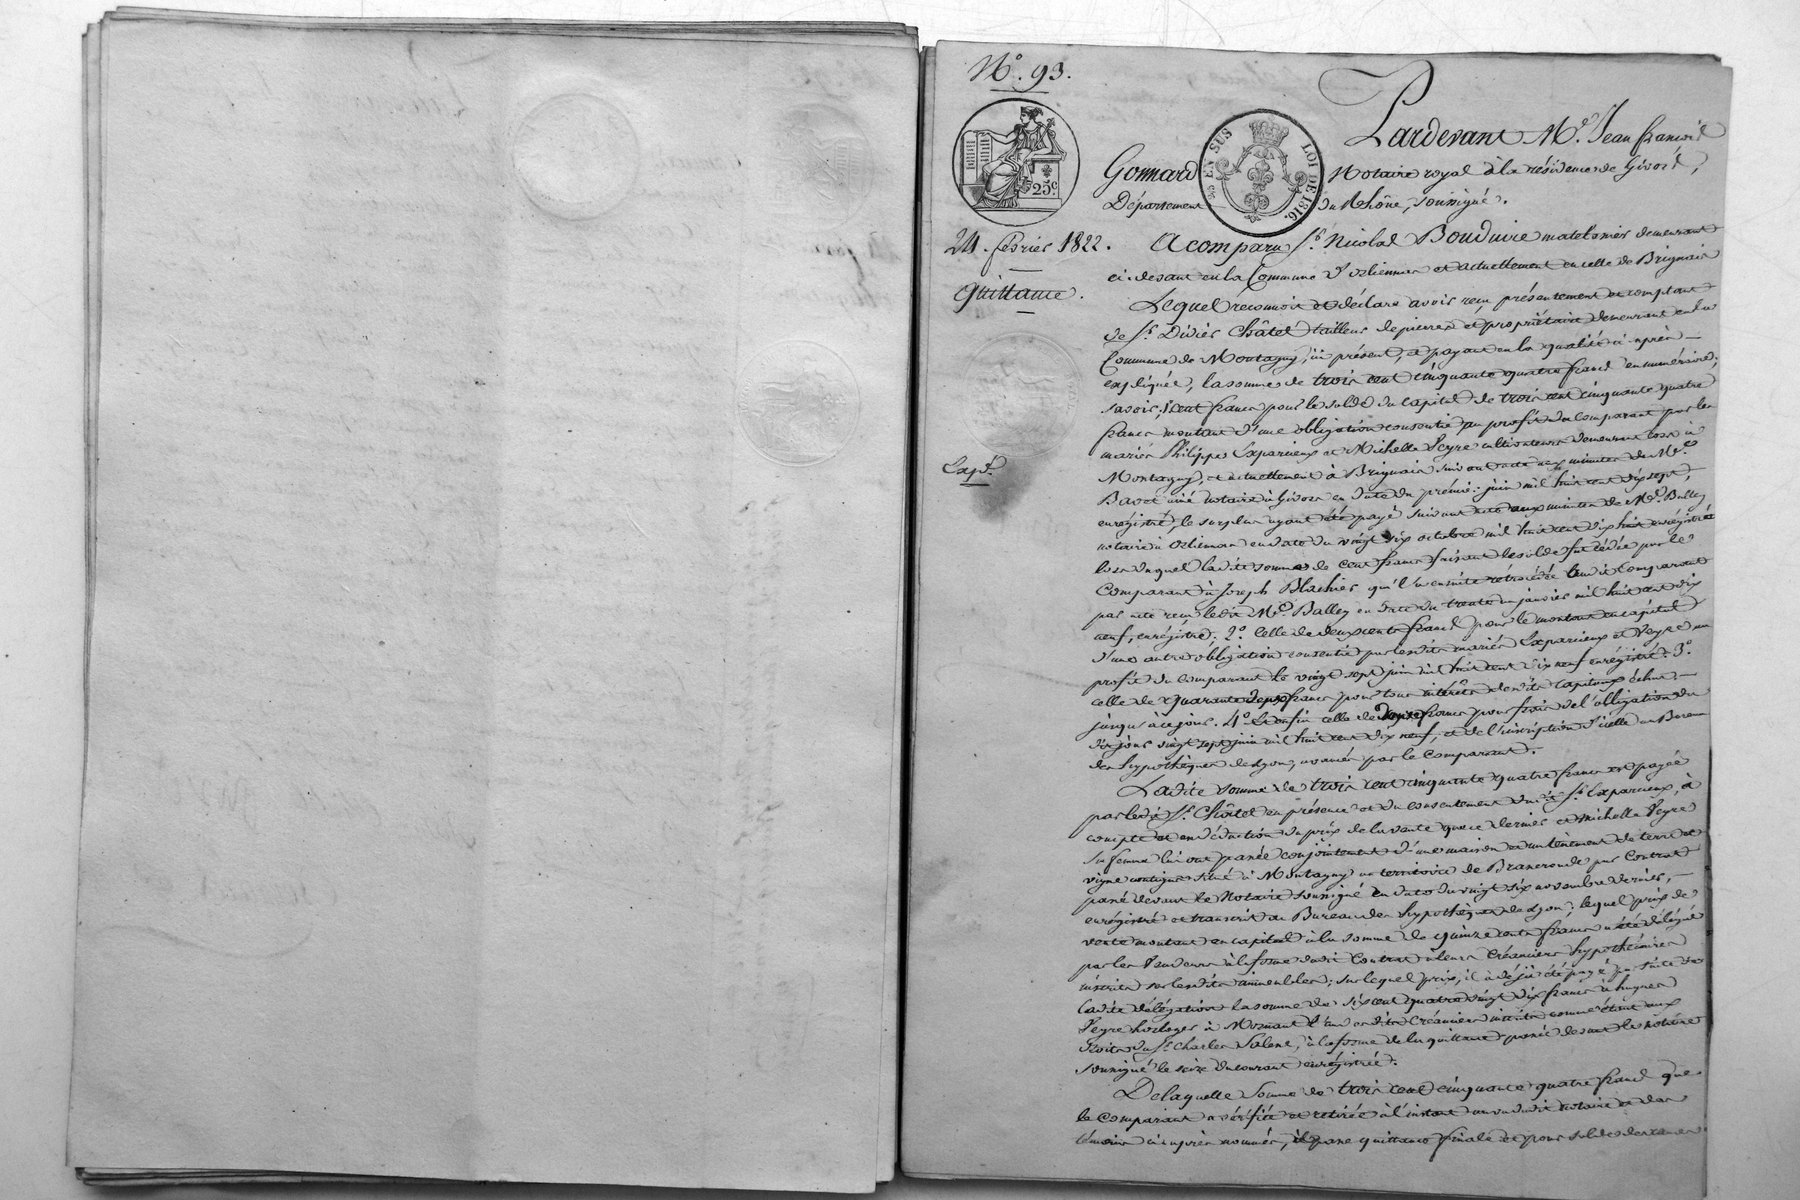 N.° 93.
25.c
25 EN SUS LOI DE 1816.
24. février 1822.
Quittance.
Exp.é
Pardevant M.e Jean françois
Gonnard Notaire royal à la résidence de Givors,
Département du Rhône, soussigné.
A comparu S.r Nicolas Bouduire matelassier demeurant
ci-devant en la Commune d'orliennas et actuellement en celle de Brignais
Lequel reconnoit et déclare avoir reçu présentement et comptant
de S.r Didier Châtel tailleur de pierres et propriétaire demeurant en la
Commune de Montagny, ici présent, et payant en la qualité ci-après
expliquée, la somme de trois cent cinquante quatre francs en numéraire;
savoir, 1.° cent francs pour le solde du capital de trois cent cinquante quatre
francs montant d'une obligation consentie au profit du comparant par les
mariés Philippe Exparcieux et Michelle Peyre cultivateurs demeurant lors à
Montagny, et actuellement à Brignais suivant acte aux minutes de M.e
Bavot ainé notaire à Givors en date du premier juin mil huit cent dix sept,
enregistré, le surplus ayant été payé suivant acte aux minutes de M.e Balley
notaire à Orliennas en date du vingt six octobre mil huit cent dix huit enregistré
lors duquel ladite somme de cent francs faisant le solde fut cédée par le
Comparant à Joseph Blachier qui l'a ensuite rétrocédée audit Comparant
par acte reçu ledit M.e Balley en date du trente un janvier mil huit cent dix
neuf, enregistré; 2.° Celle de deux cents francs pour le montant en capital
d'une autre obligation consentie par lesdits mariés Exparcieux et Peyre au
profit du comparant le vingt sept juin mil huit cent dix neuf enregistré. 3.°
celle de quarante deux francs pour tous intérêts desdits capitaux échus
jusqu'à ce jour. 4.° Et enfin celle de douze francs pour frais de l'obligation du
dit jour vingt sept juin mil huit cent dix neuf, et de l'inscription d'icelle au Bureau
des hypothèques de Lyon, avancés par le comparant.
Ladite somme de trois cent cinquante quatre francs est payée
par ledit S.r Châtel en présence et du consentement dudit S.r Exparcieux, à
compte et en déduction du prix de la vente que ce dernier et Michelle Peyre
sa femme lui ont passée conjointement d'une maison et un tènement de terre et
vigne contigus situé à Montagny au territoire de par Contrat
passé devant le Notaire soussigné en date du vingt six novembre dernier,
enregistré et transcrit au Bureau des hypothèques de Lyon; lequel prix de
vente montant en capital à la somme de quinze cents francs a été délégué
par les Vendeurs à la forme dudit Contrat à leurs Créanciers hypothécaires
inscrits sur lesdits immeubles; sur lequel prix, il a déjà été payé par suite de
ladite délégation la somme de six cent quatre vingt dix francs à hugues
Peyre horloger à Mornant l'un desdits Créanciers inscrits comme étant aux
droits du S.r Charles Salene, à la forme de la quittance passée devant le notaire
soussigné le seize du courant enregistrée.
De laquelle somme de trois cent cinquante quatre francs que
le comparant a vérifiée et retirée à l'instant au vu dudit notaire et des
témoins ci-après nommés, il passe quittance finale et pour solde